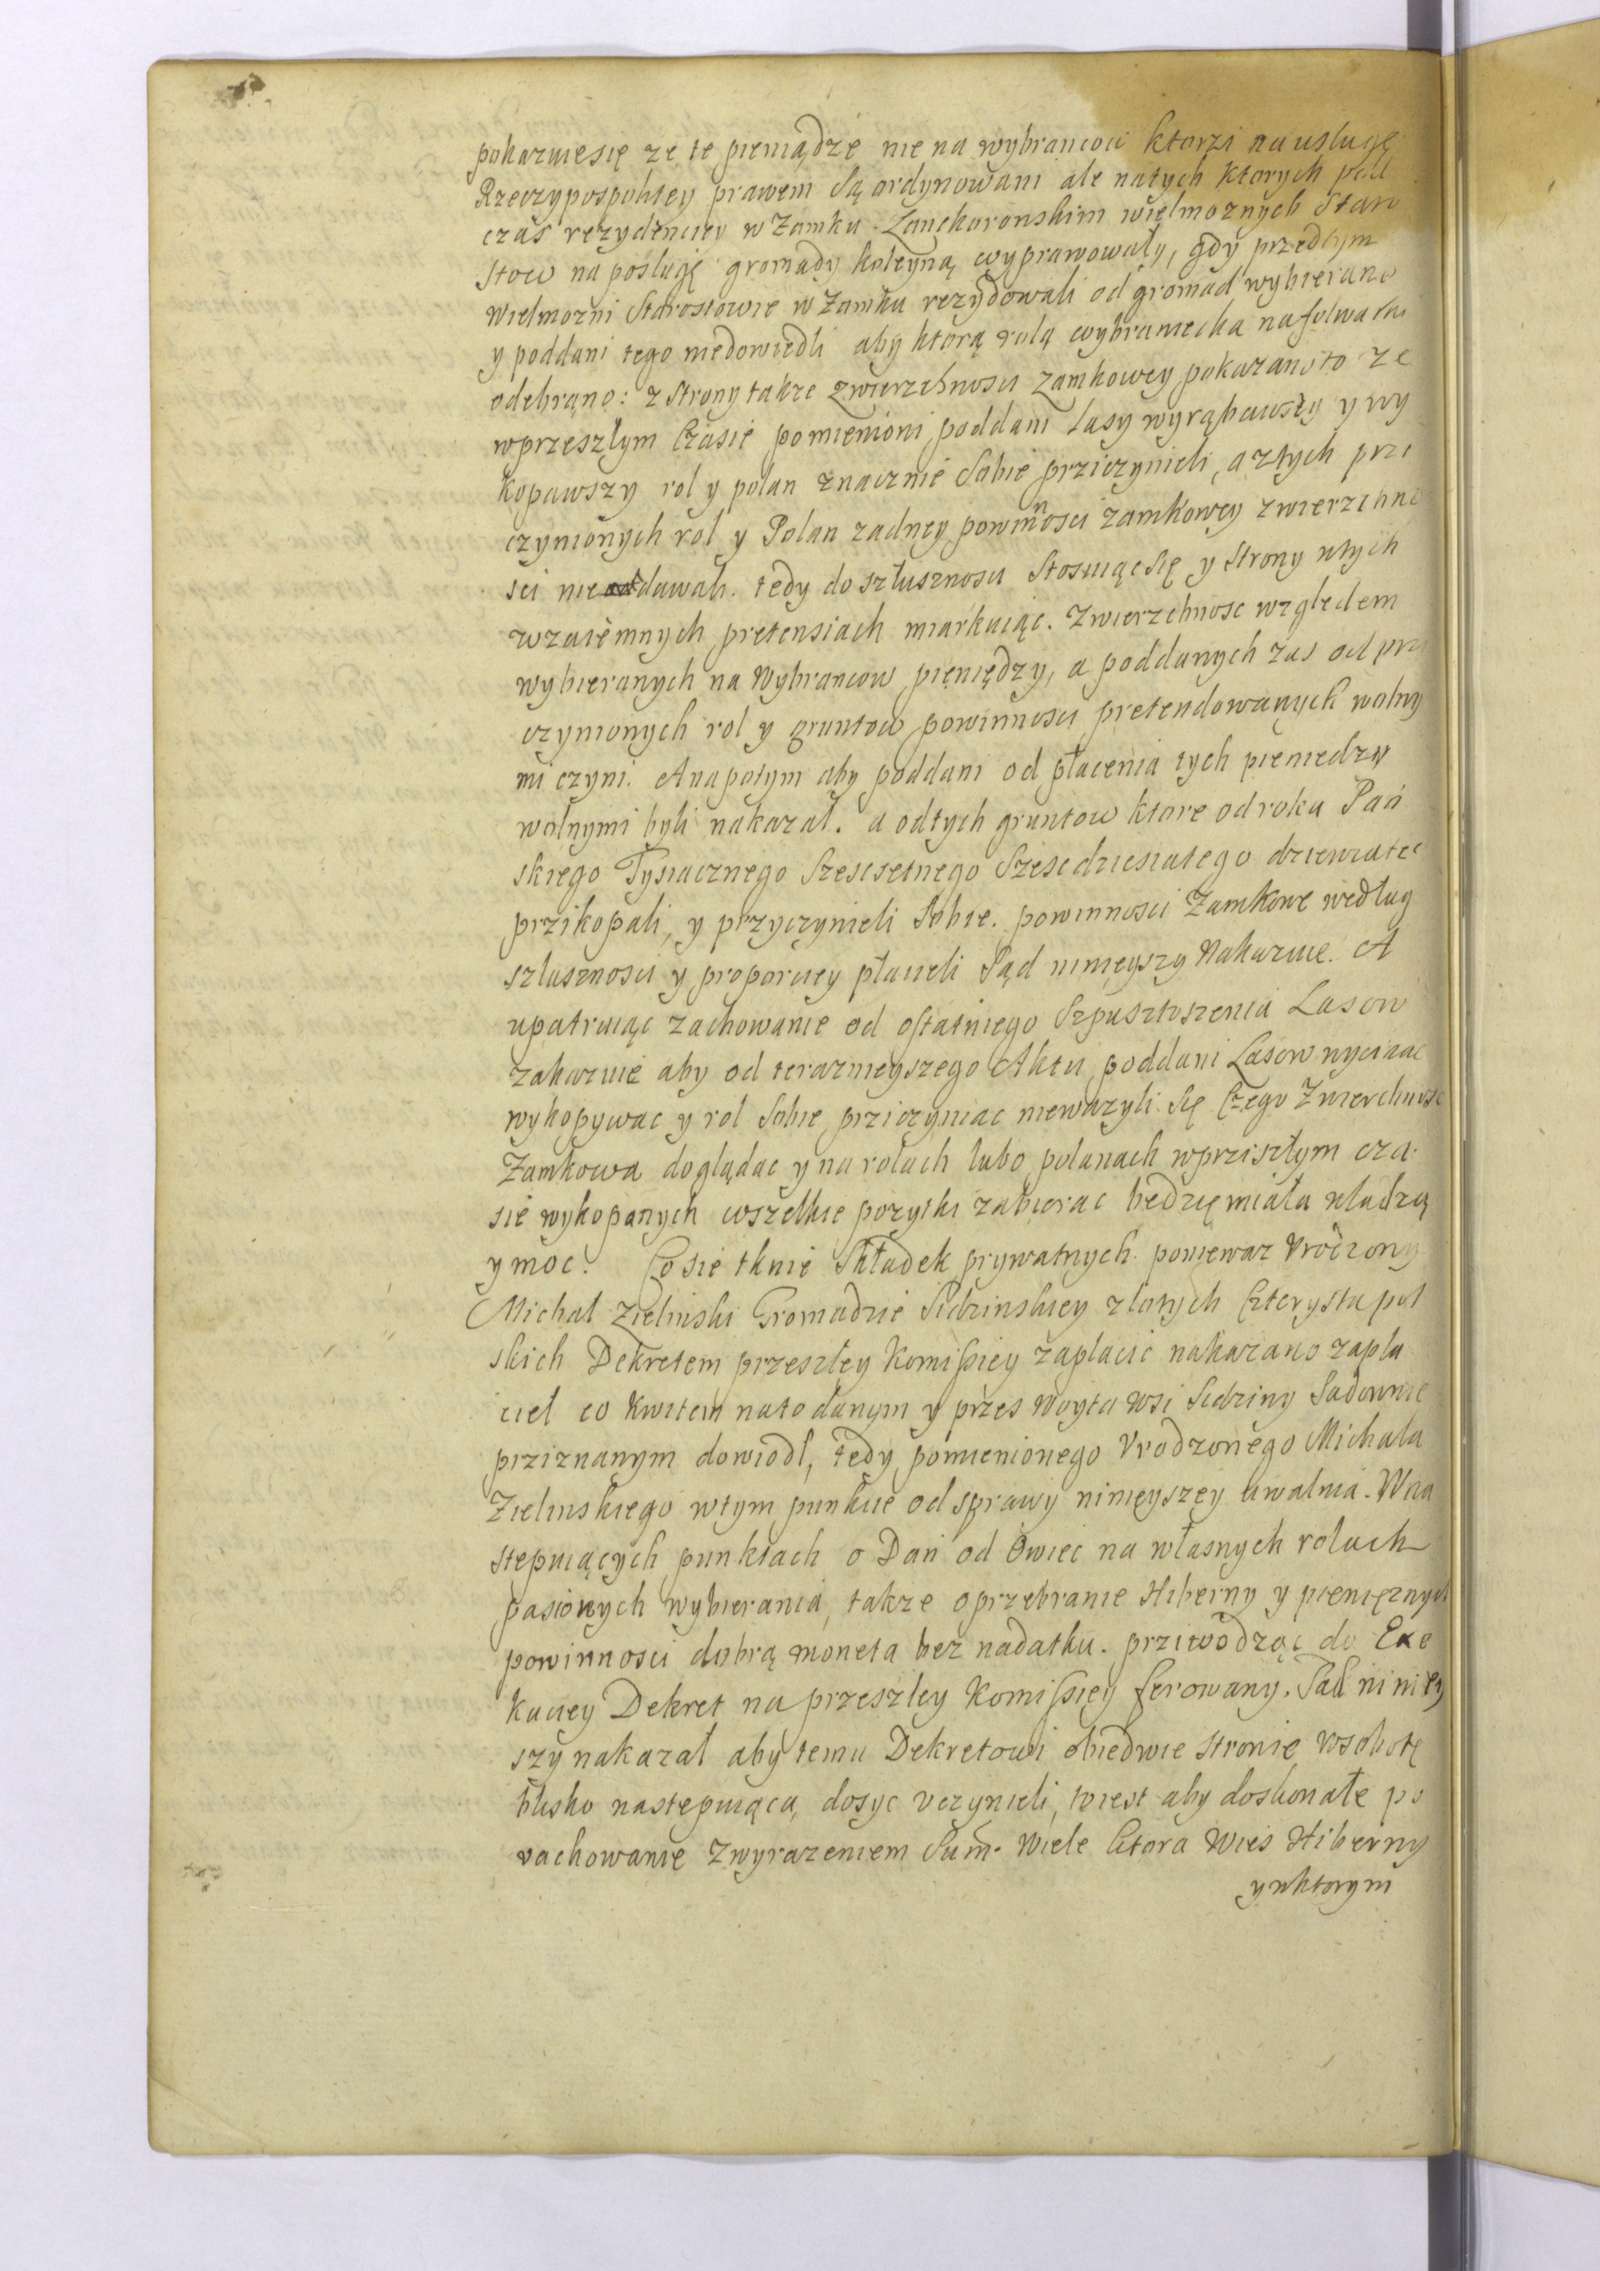 pokazuie się ze te pieniądze nie na wybrancow ktorzi na usługę
Rzeczypospolitey prawem są ordynowani ale natych ktorych pod
czas rezydenciey w Zamku Lanckoronskim wielmoznych Staro
stow na posługę gromady koleyną wyprawowały, gdy przedtym
Wielmozni Starostowie w Zamku rezydowali od gromad wybierano
y poddani tego niedowiedli aby ktorą rolą wybraniecka na folwark
odebrąno: z Strony takze Zwierzchnosci Zamkowey pokazano to ze
wprzeszłym Czasie pomienioni poddani Lasy wyrąbawszy y wy
kopawszy rol y polan znacznie Sobie prziczynieli, a ztych prze
czynionych rol y Polan zadney powinnosci zamkowey zwierzchno
sci nie dawali. tedy do szłusznosci Stosuiąc Się y Strony wtych
wzaiemnych pretensiach miarkuiąc. Zwierzchnosc względem
wybieranych na Wybrancow pieniędzy, a poddanych zas od prze
czynionych rol y gruntow powinnosci pretendowanych wolny
mi czyni. Anapotym aby poddani od płacenia tych pieniedzy
wolnymi byli nakazał. a odtych gruntow ktore od roku Pań
skiego Tysiacznego Szescsetnego Szescdziesiatego dziewiatec
przikopali, y przyczynieli Sobie. powinnosci Zamkowe według
szlusznosci y proporciey płacieli Sąd ninieyszy Nakazuie. A
upatruiąc zachowanie od ostatniego Szpusztoszenia Lasow
zakazuie aby od teraznieyszego Aktu poddani Lasow wycinac
wykopywac y rol Sobie prziczyniac niewazyli Się Czego Zwierchnosc
Zamkowa doglądac y na rolach lubo polanach wprziszłym cza
sie wykopanych wszelkie pozytki zabierac bedzię miała władzą
y moc. Co sie tknie Składek prywatnych poniewaz Vrodzony
Michał Zielinski Gromadzie Sidzinskiey złotych Czterysta pol
skich Dekretem przeszłey Komissiey zapłacic nakazano zapła
cieł co Kwitem nato danym y przes Woyta Wsi Sidziny Sadownie
priznanym dowiodł, tedy pomienionego Vrodzonego Michała
Zielinskiego wtym punkcie od sprawy ninieyszey uwalnia. Wna
stepuiących punktach o Dań od Owiec na własnych rolach
pasionych wybierania, takze oprzebranie Hiberny y pieniężnych
powinnosci dobrą moneta bez nadatku. prziwodząc do Exe
kuciey Dekret na przeszłey Komissiey ferowany. Sad niniey
szy nakazał aby temu Dekretowi obiedwie stronie wsobotę
blisko nastepuiąca, dosyc vczynieli, toiest aby doskonałe po
rachowanie Zwyrazeniem Sum. Wiele Ktora Wies Hiberny
y wktorym